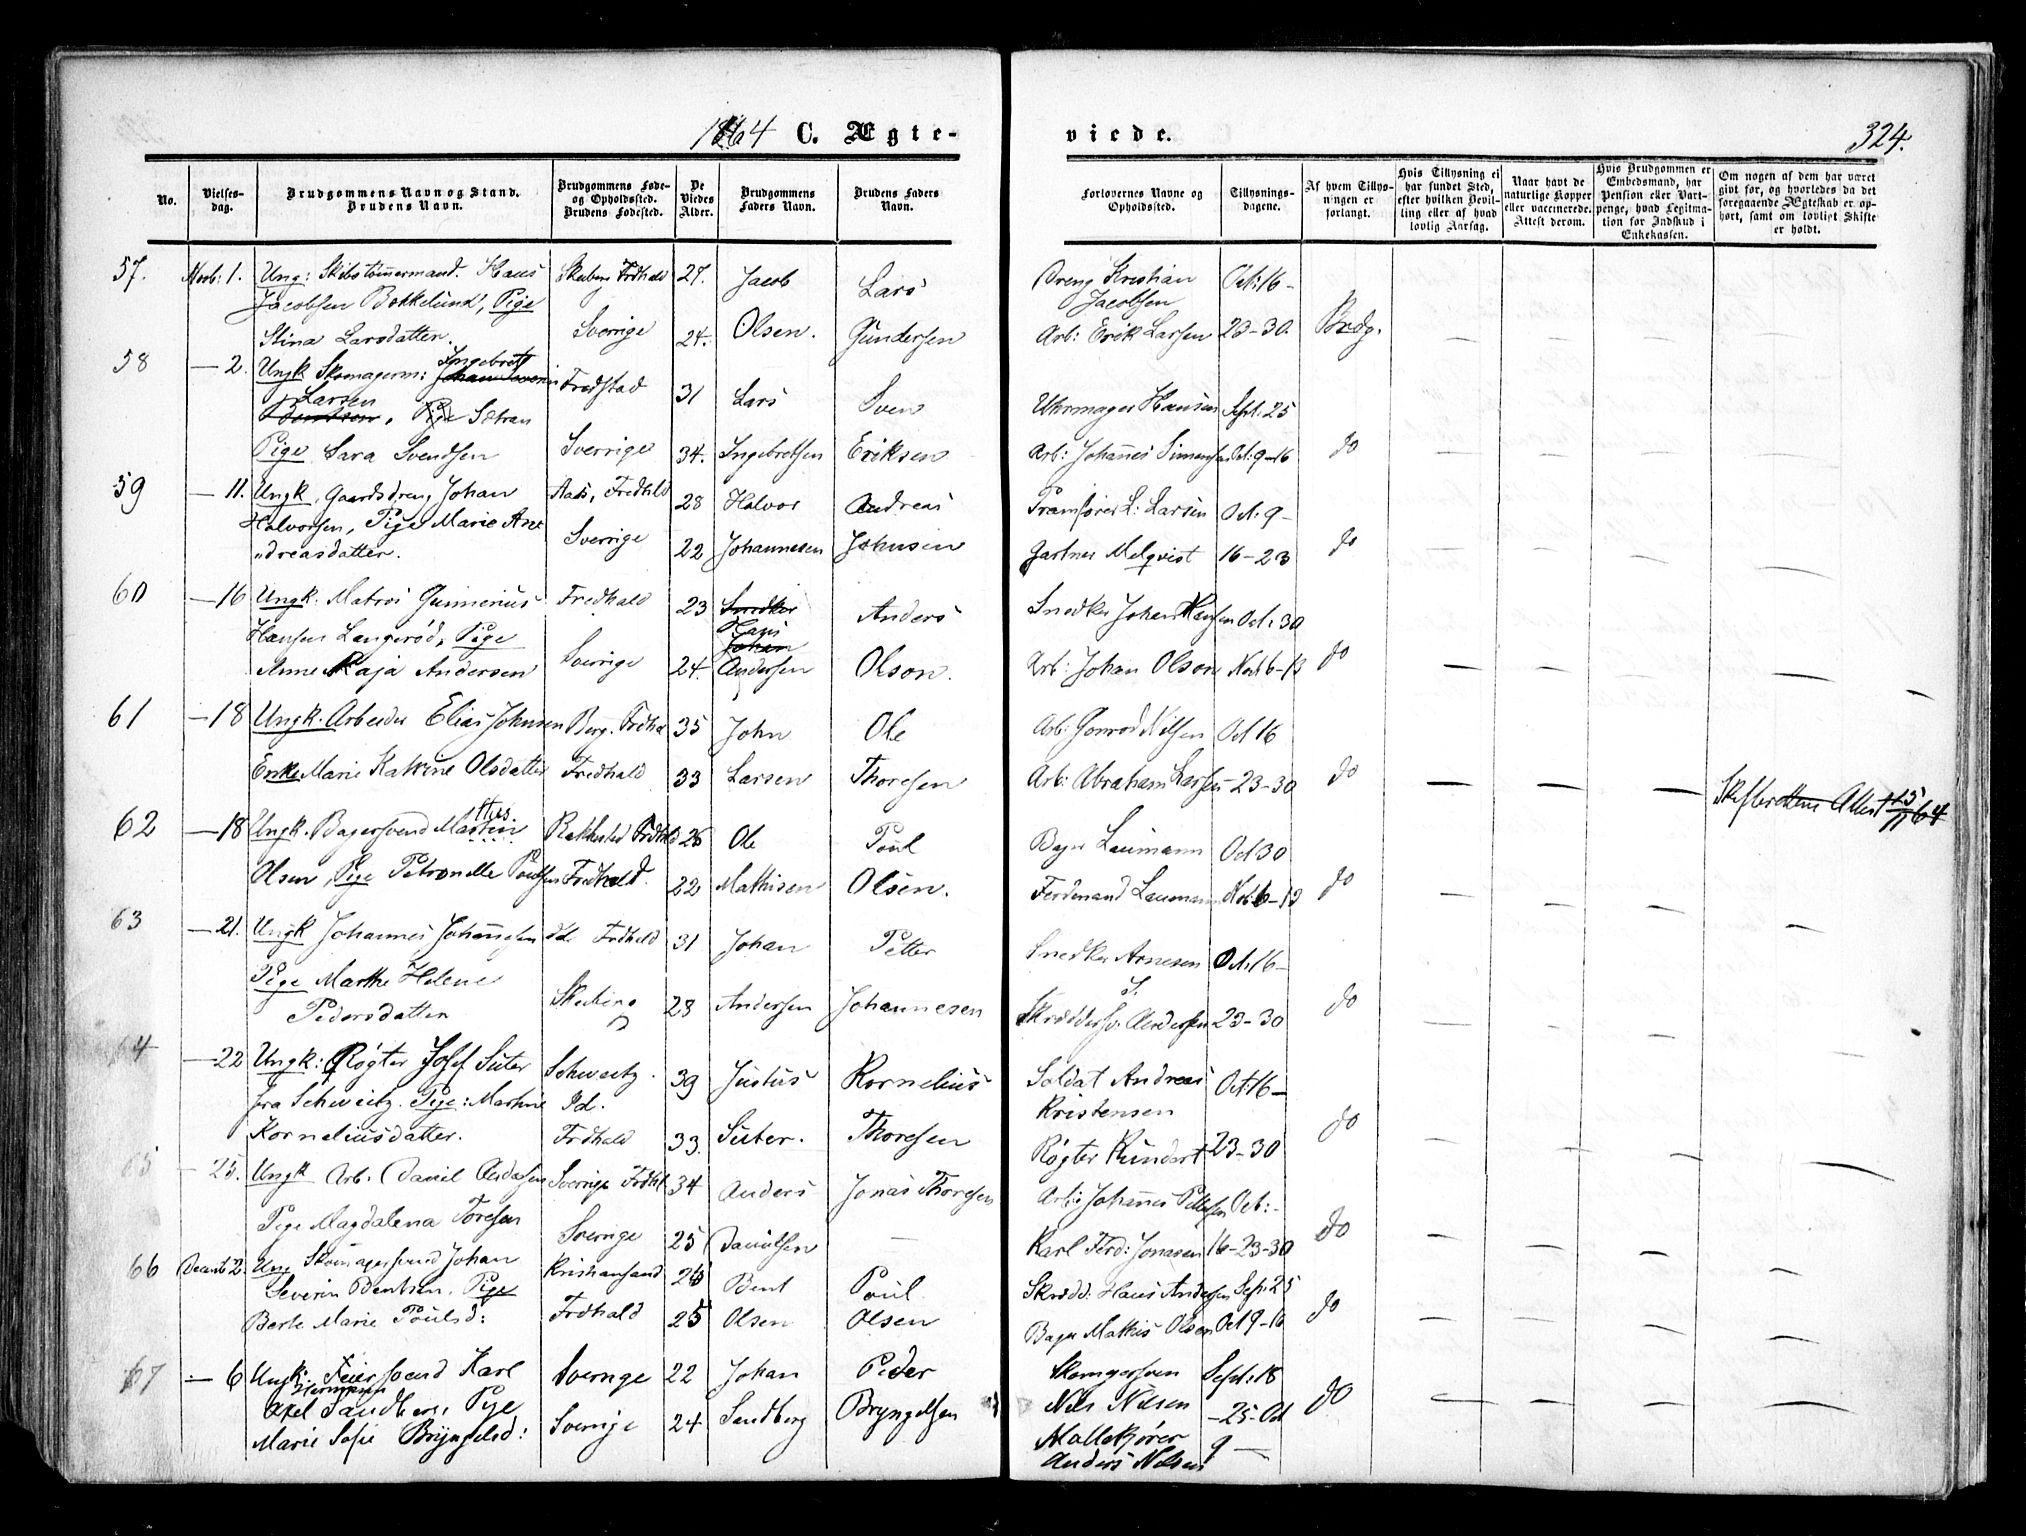 1864 C. Ægte-
viede.
324.
No.
Vielses-
dag.
Brudgommens Navn og Stand.
Brudens Navn.
Brudgommens Føde-
og Opholdssted.
Brudens Fødested.
De
Viedes
Alder.
Brudgommens
Faders Navn.
Brudens Faders
Navn.
Forlovernes Navne og
Opholdssted.
Tillysnings-
dagene.
Af hvem Tillys-
ningen er
forlangt.
Hvis Tillysning ei
har fundet Sted,
efter hvilken Bevil-
ling eller af hvad
lovlig Aarsag.
Naar havt de
naturlige Kopper
eller vaccinerede.
Attest derom.
Hvis Brudgommen er
Embedsmand, har
Pension eller Vart-
penge, hvad Legitima-
tion for Indskud i
Enkekassen.
Om nogen af dem har været
givt før, og hvorledes da det
foregaaende Ægteskab er op-
hørt, samt om lovligt Skifte
er holdt.
57. Novb: 1. Ung: Skibstømmermand. Hans Frdhald 27. Jacob Lars Kristian Oct: 16 -
Jacobsen Bokkelund, Pige Jacobsen
Stina Larsdatter. Sverrige 24. Olsen. Gundersen Arb: Erik Larsen 23-30. Brdg.
58 — 2. Ungk Skomagerm: Ingebret Johan Severin Fredstad 31 Lars Sven Uhrmager Hansen Sept: 25
Larsen Bentsen, Pige
Pige Sara Svendsen Sverrige 34. Ingebretsen Eriksen Arb: Johannes Simensen Oct: 9-16 do
59 — 11. Ungk, Gaardsdreng Johan Aas, Frdhald 28 Halvor Andreas L: Larsen Oct: 9-
Halvorsen, Pige Marie An
"dreasdatter. Sverrige 22 Johannesen Johnsen Gartner Melqvist 16-23 do
60 — 16 Ungk. Matros Gunnerius Fredhald 23 Snedker Hans Anders Snedker Johan Hansen Oct: 30
Hansen Langerød, Pige Johan
Anne Kaja Andersen Sverrige 24. Andersen Olson. Arb: Johan Olson Nov 6-13 do
61 — 18 Ungk. Arbeider Elias Johnsen Berg. Frdha 35 John Ole Arb: Nilsen Oct 16
Enke Marie Katrine Olsdatter Fredhald 33 Larsen Thoresen Arb: Abraham Larsen - 23-30 do Skifterettens Attest 15/11 64
62 — 18 Ungk. Bagersvend Martin this Rakkestad Frdhld 26 Ole Poul Bager Laumann Oct 30
Olsen, Pige Petronelle Poulsen Fredhald. 22 Mathisen Olsen. Ferdinand Laumann Nov: 6-13 do
63 — 21. Ungk Johannes Johannesen Id. Frdhald 31 Johan Petter Snedker Arnesen Oct: 16 -
Pige Marthe Helene
Pedersdatter Skeberg 23 Andersen Johannesen Skræddersv. Andersen 23-30 do
64 — 22 Ungk: Røgter Josef Suter Schweitz. 39 Justus Kornelius Soldat Andreas Oct: 16 -
fra Schweitz. Pige: Martine Id. Kristensen
Korneliusdatter. Frdhald 33. Suter. Thoresen Røgter Kundert 23-30 do
65 — 25. Ungk Arb. Daniel Andersen Sverrige Frdhl 34 Anders Jonas Thoresen Arb: Johannes Pettersen Oct: -
Pige Magdalena Toresen Sverrige 25 Danielsen — Karl Ferd: Jonasen 16-23-30 do
66 Decemb 2. Ung Skomagersvend Johan Kristiansand 26 Bent Poul Skrædd: Hans Andersen Sept: 25
Severin Bentsen, Pige
Berte Marie Poulsd: Frdhald 25 Olsen Olsen Bager Mathis Olsen Oct 9-16 do
67 — 6 Ungk. Feiersvend Karl Sverrige 22 Johan Peder Skomgersven Sept: 18
Herman
Axel Sandberg, Pige Nils Nilsen - 25 - Oct do
Marie Sofie Bryngelsd: Sverrige 24 Sandberg Bryngelsen Møllekjører 9 —
Anders Nilsen